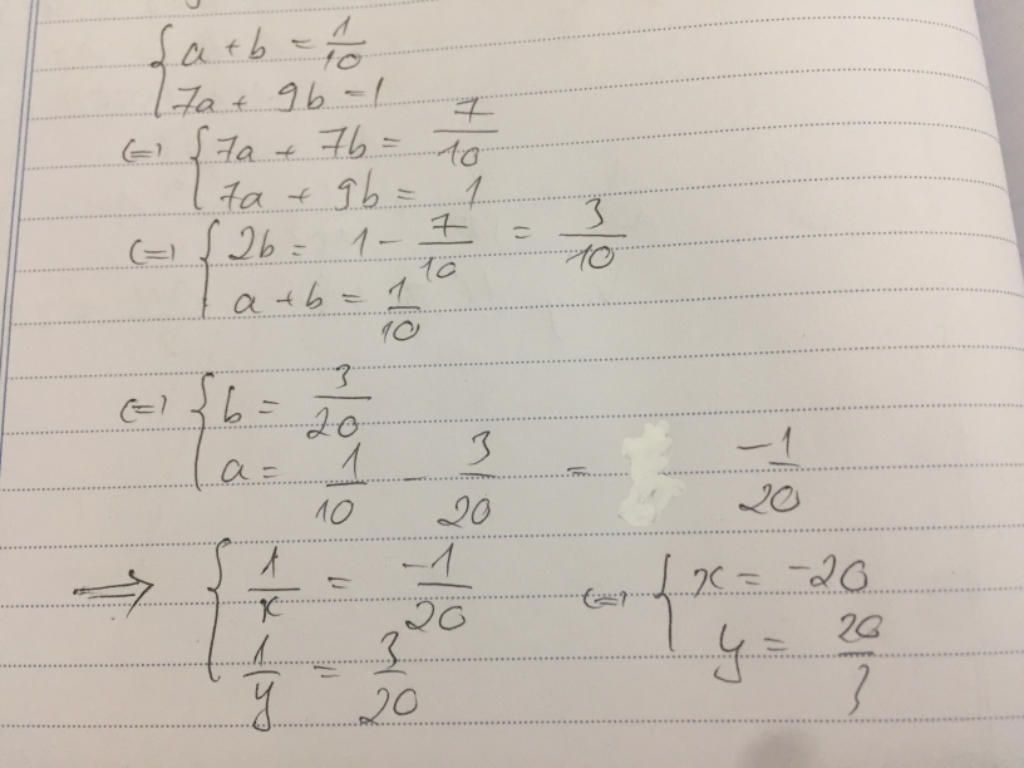 { a + b = 1/10
7a + 9b = 1
(=) { 7a + 7b = 7/10
7a + 9b = 1
(=) { 2b = 1 - 7/10 = 3/10
a + b = 1/10
(=) { b = 3/20
a = 1/10 - 3/20 = -1/20
⟹ { 1/x = -1/20 (=) { x = -20
1/y = 3/20 y = 20/3